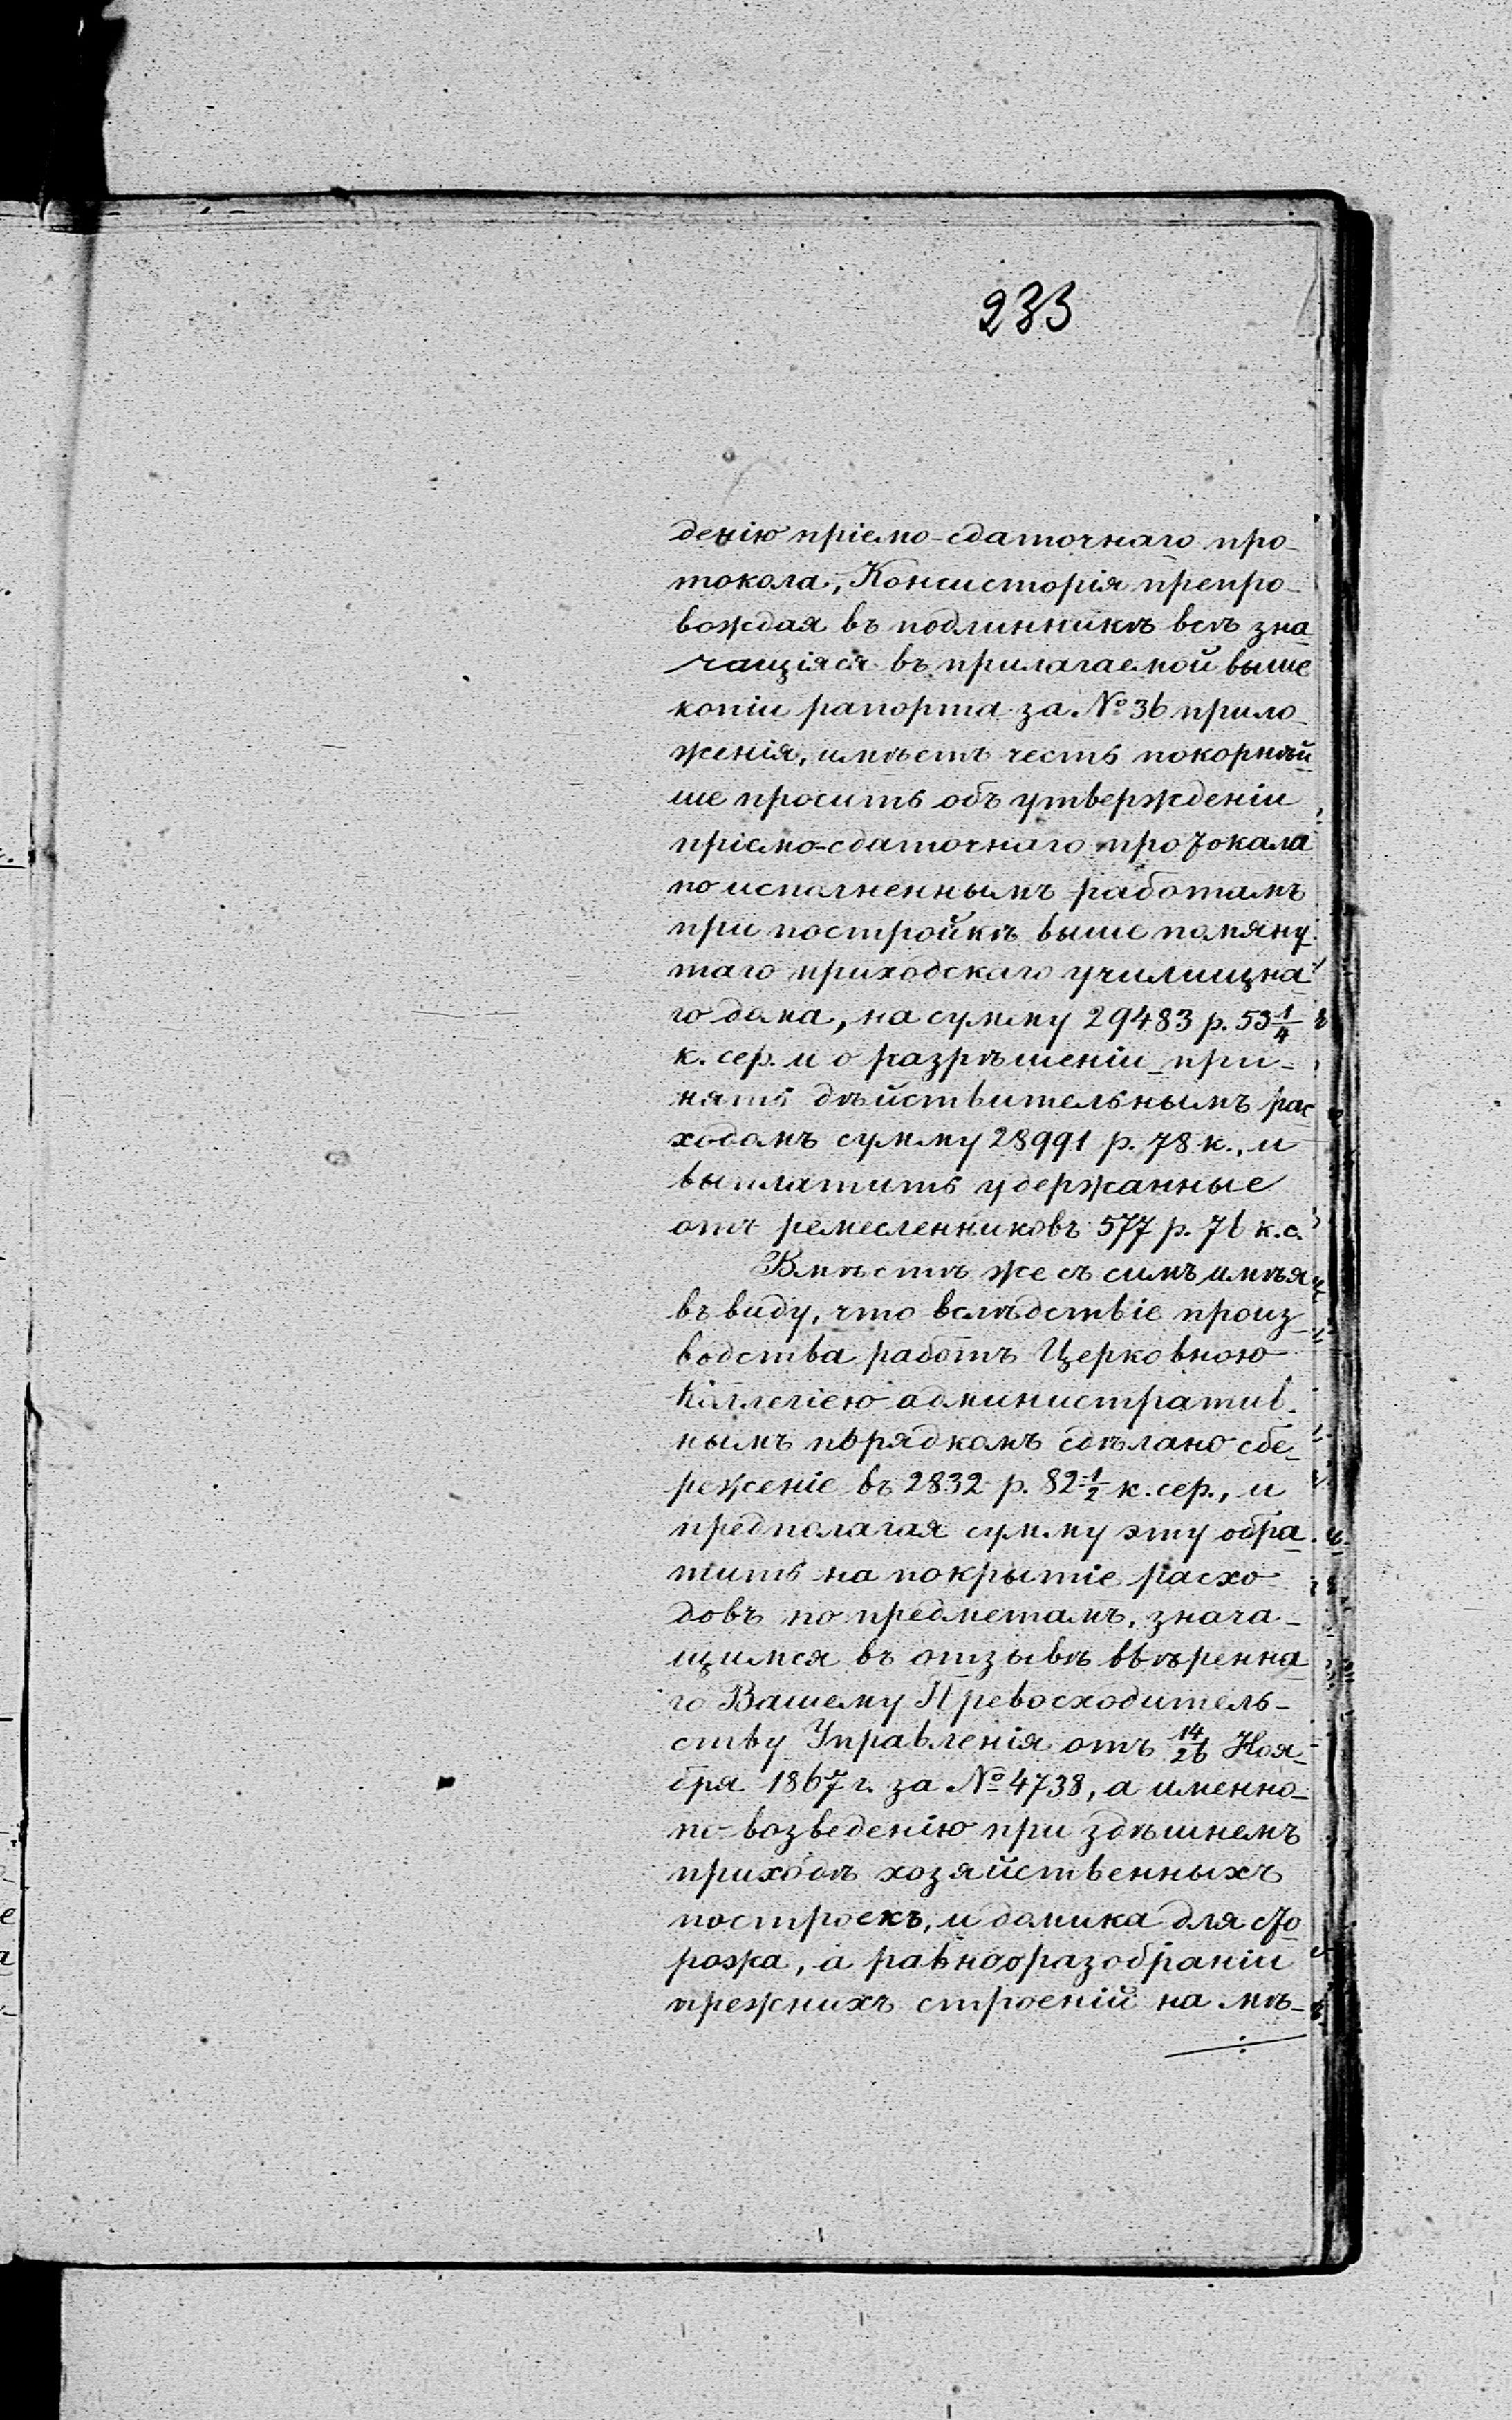 233
денію пріемо-сдаточнаго про-
токола, Консисторія препро-
вождая въ подлинникѣ всѣ зна
чащіяся въ прилагаемой выше
копіи рапорта за № 36 прило-
женія, имѣетъ честь покорнѣй
ше просить объ утвержденіи
пріемо-сдаточнаго протокала
по исполненнымъ работамъ
при постройкѣ выше помяну
таго приходскаго училищна
го дома, на сумму 29483 р. 53 1/4
к. сер. и о разрѣшеніи при-
нять дѣйствительнымъ рас
ходомъ сумму 28991 р. 78 к., и
выплатить удержанные
отъ ремесленниковъ 577 р. 76 к. с.
Вмѣстѣ же съ симъ имѣя
въ виду, что вслѣдствіе произ
водства работъ Церковною
Коллегіею административ-
нымъ порядкомъ сдѣлано сбе
реженіе въ 2832 р. 82 1/2 к. сер., и
предполагая сумму эту обра
тить на покрытіе расхо-
довъ по предметамъ, знача-
щимся въ отзывѣ ввѣренна
го Вашему Превосходитель-
ству Управленія отъ 14/26 Ноя-
бря 1867 г. за № 4738, а именно-
по возведенію при здѣшнемъ
приходѣ хозяйственныхъ
построекъ, и домика для сто
рожа, а равно о разобраніи
прежнихъ строеній на мѣ-